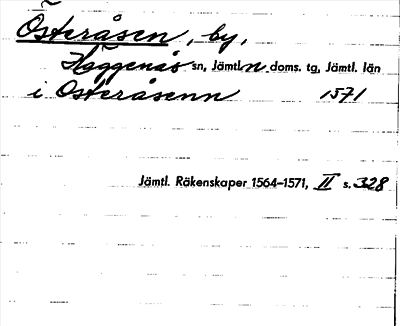 Österåsen, by,
Häggenås sn, Jämtl. n. doms. tg, Jämtl. län
i Österåsenn 1571
Jämtl. Räkenskaper 1564-1571, II s. 328